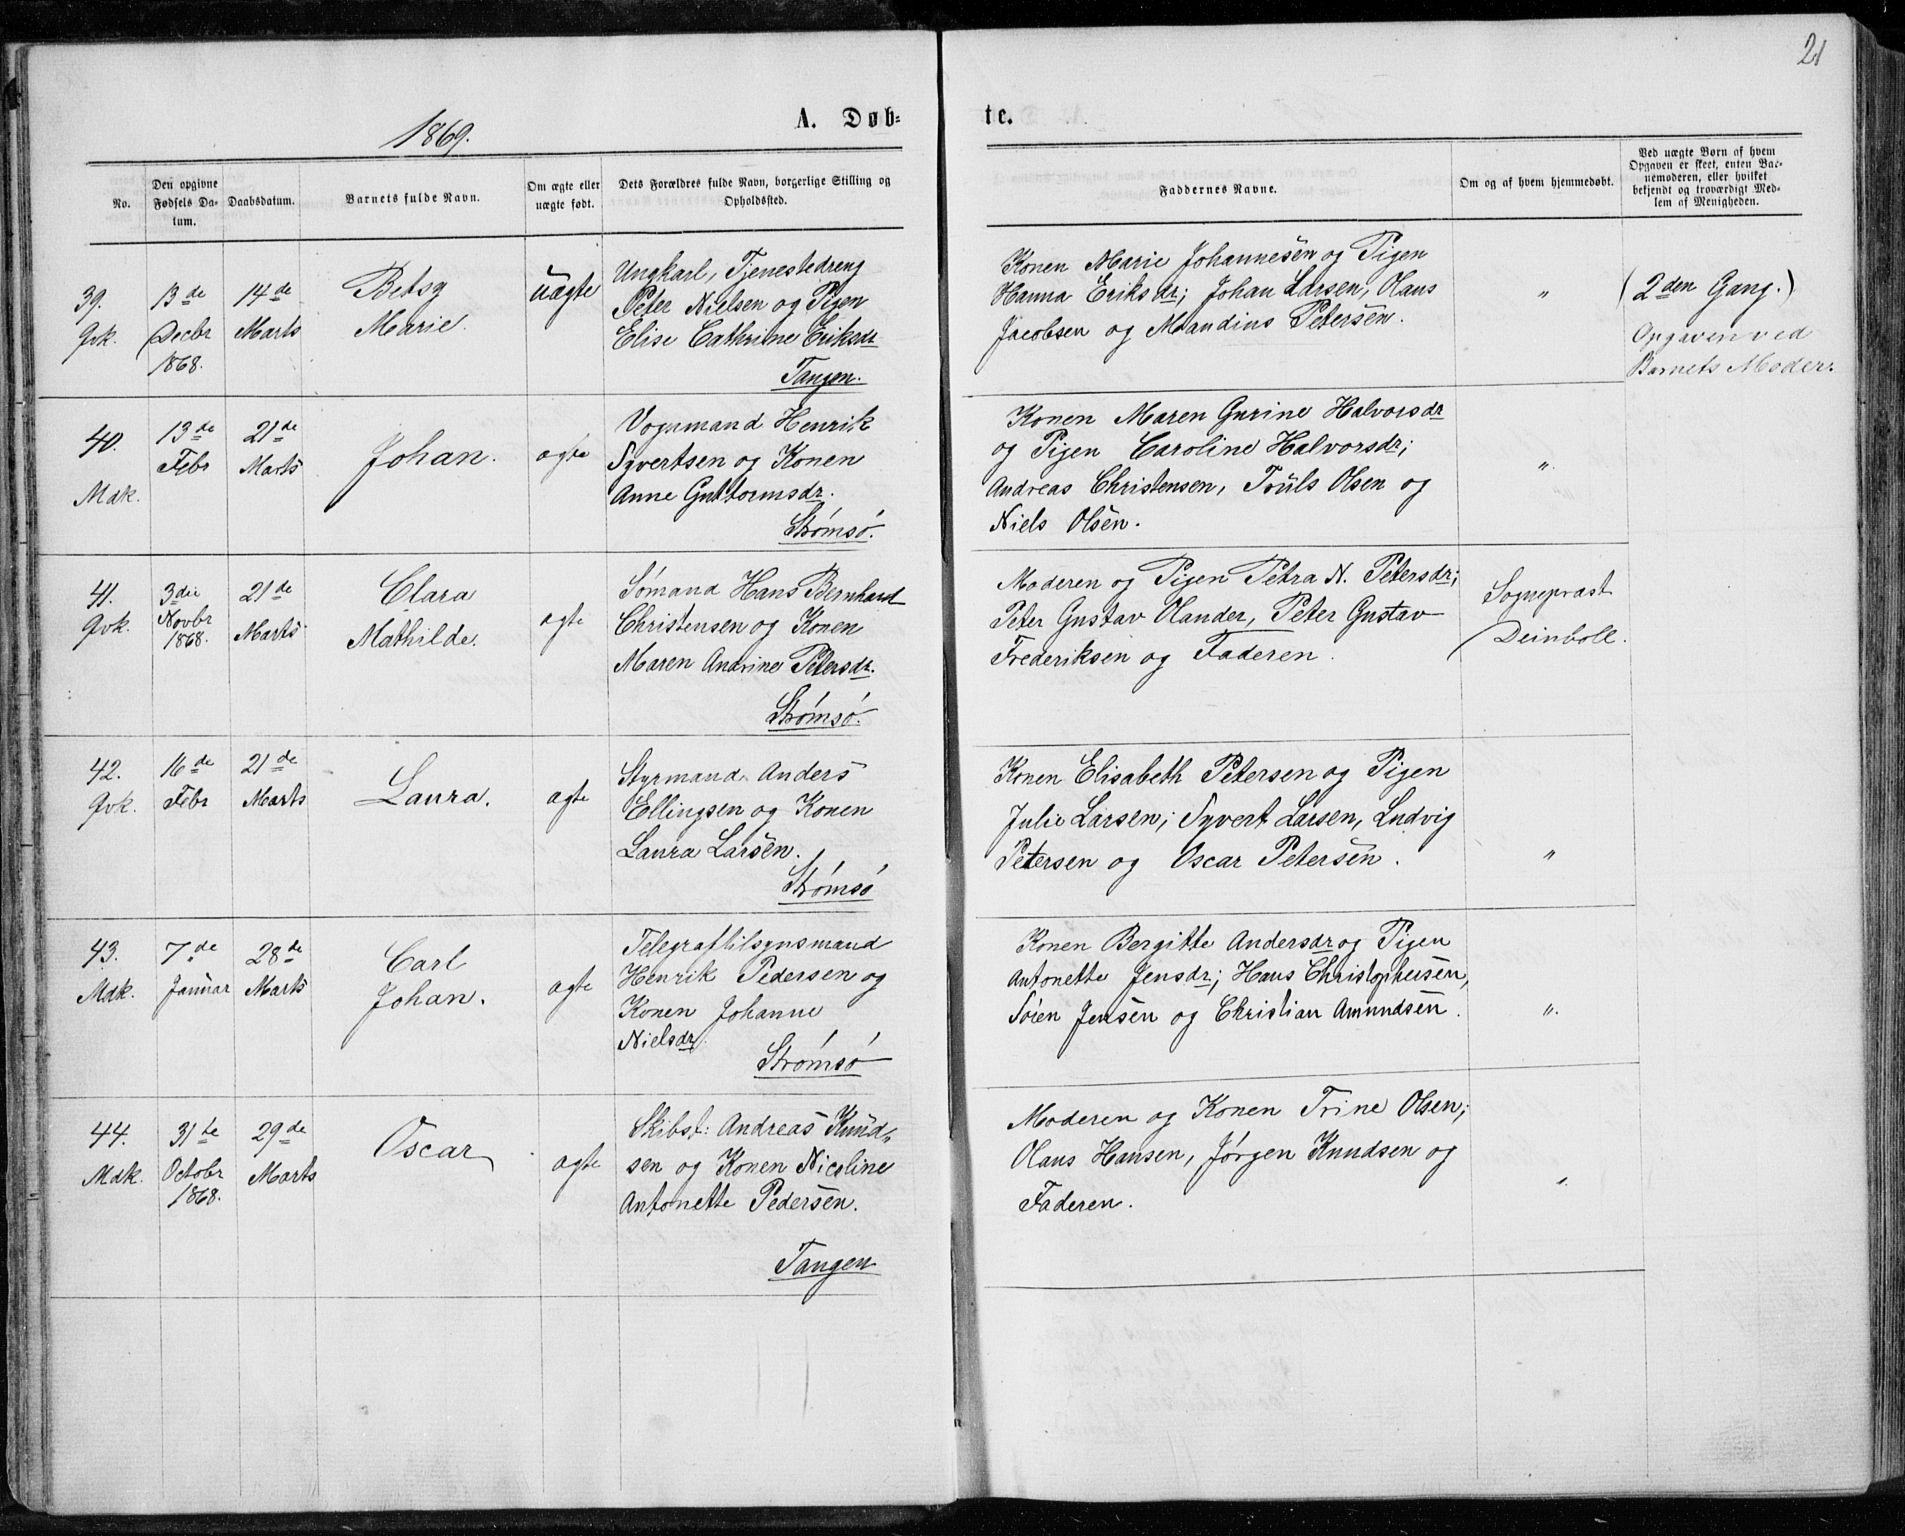 21
1869.
A. Døb-
te.
No.
Den opgivne
Fødsels Da-
tum.
Daabsdatum.
Barnets fulde Navn.
Om ægte eller
uægte født.
Dets Forældres fulde Navn, borgerlige Stilling og
Opholdssted.
Faddernes Navne.
Om og af hvem hjemmedøbt.
Ved uægte Børn af hvem
Opgaven er skeet, enten Bar-
nemoderen, eller hvilket
bekjendt og troværdigt Med-
lem af Menigheden.
39.
Qvk.
13de
Decbr
1868.
14de
Marts
Betsy
Marie.
uægte
Ungkarl, Tjenestedreng
Peter Nielsen og Pigen
Elise Cathrine Eriksdr
Tangen.
Konen Marie Johannesen og Pigen
Hanna Eriksdr; Johan Larsen, Olaus
Jacobsen og Mandius Petersen.
"
(2den Gang.)
Opgaven ved
Barnets Moder.
40.
Mdk.
13de
Febr
21de
Marts
Johan.
ægte
Vognmand Henrik
Syvertsen og Konen
Anne Guttormsdr.
Strømsø.
Konen Maren Gurine Halvorsdr
og Pigen Caroline Halvorsdr;
Andreas Christensen, Truls Olsen og
Niels Olsen.
"
41.
Qvk.
3die
Novbr
1868.
21de
Marts
Clara
Mathilde.
ægte
Sømand Hans Bernhard
Christensen og Konen
Maren Andrine Petersdr.
Strømsø.
Moderen og Pigen Petra N. Petersdr;
Peter Gustav Olander, Peter Gustav
Frederiksen og Faderen.
Sognepræst
Deinboll.
42.
Qvk.
16de
Febr
21de
Marts
Laura.
ægte
Styrmand Anders
Ellingsen og Konen
Laura Larsen.
Strømsø
Konen Elisabeth Petersen og Pigen
Julie Larsen; Syvert Larsen, Ludvig
Petersen og Oscar Petersen.
"
43.
Mdk.
7de
Januar
28de
Marts
Carl
Johan.
ægte
Telegraftilsynsmand
Henrik Pedersen og
Konen Johanne
Nielsdr
Strømsø
Konen Bergitte Andersdr og Pigen
Antonette Jensdr; Hans Christophersen,
Søren Jensen og Christian Amundsen.
"
44.
Mdk.
31te
Octobr
1868.
29de
Marts
Oscar
ægte
Skibst: Andreas Knud-
sen og Konen Nicoline
Antonette Pedersen.
Tangen
Moderen og Konen Trine Olsen;
Olaus Hansen, Jørgen Knudsen og
Faderen.
"